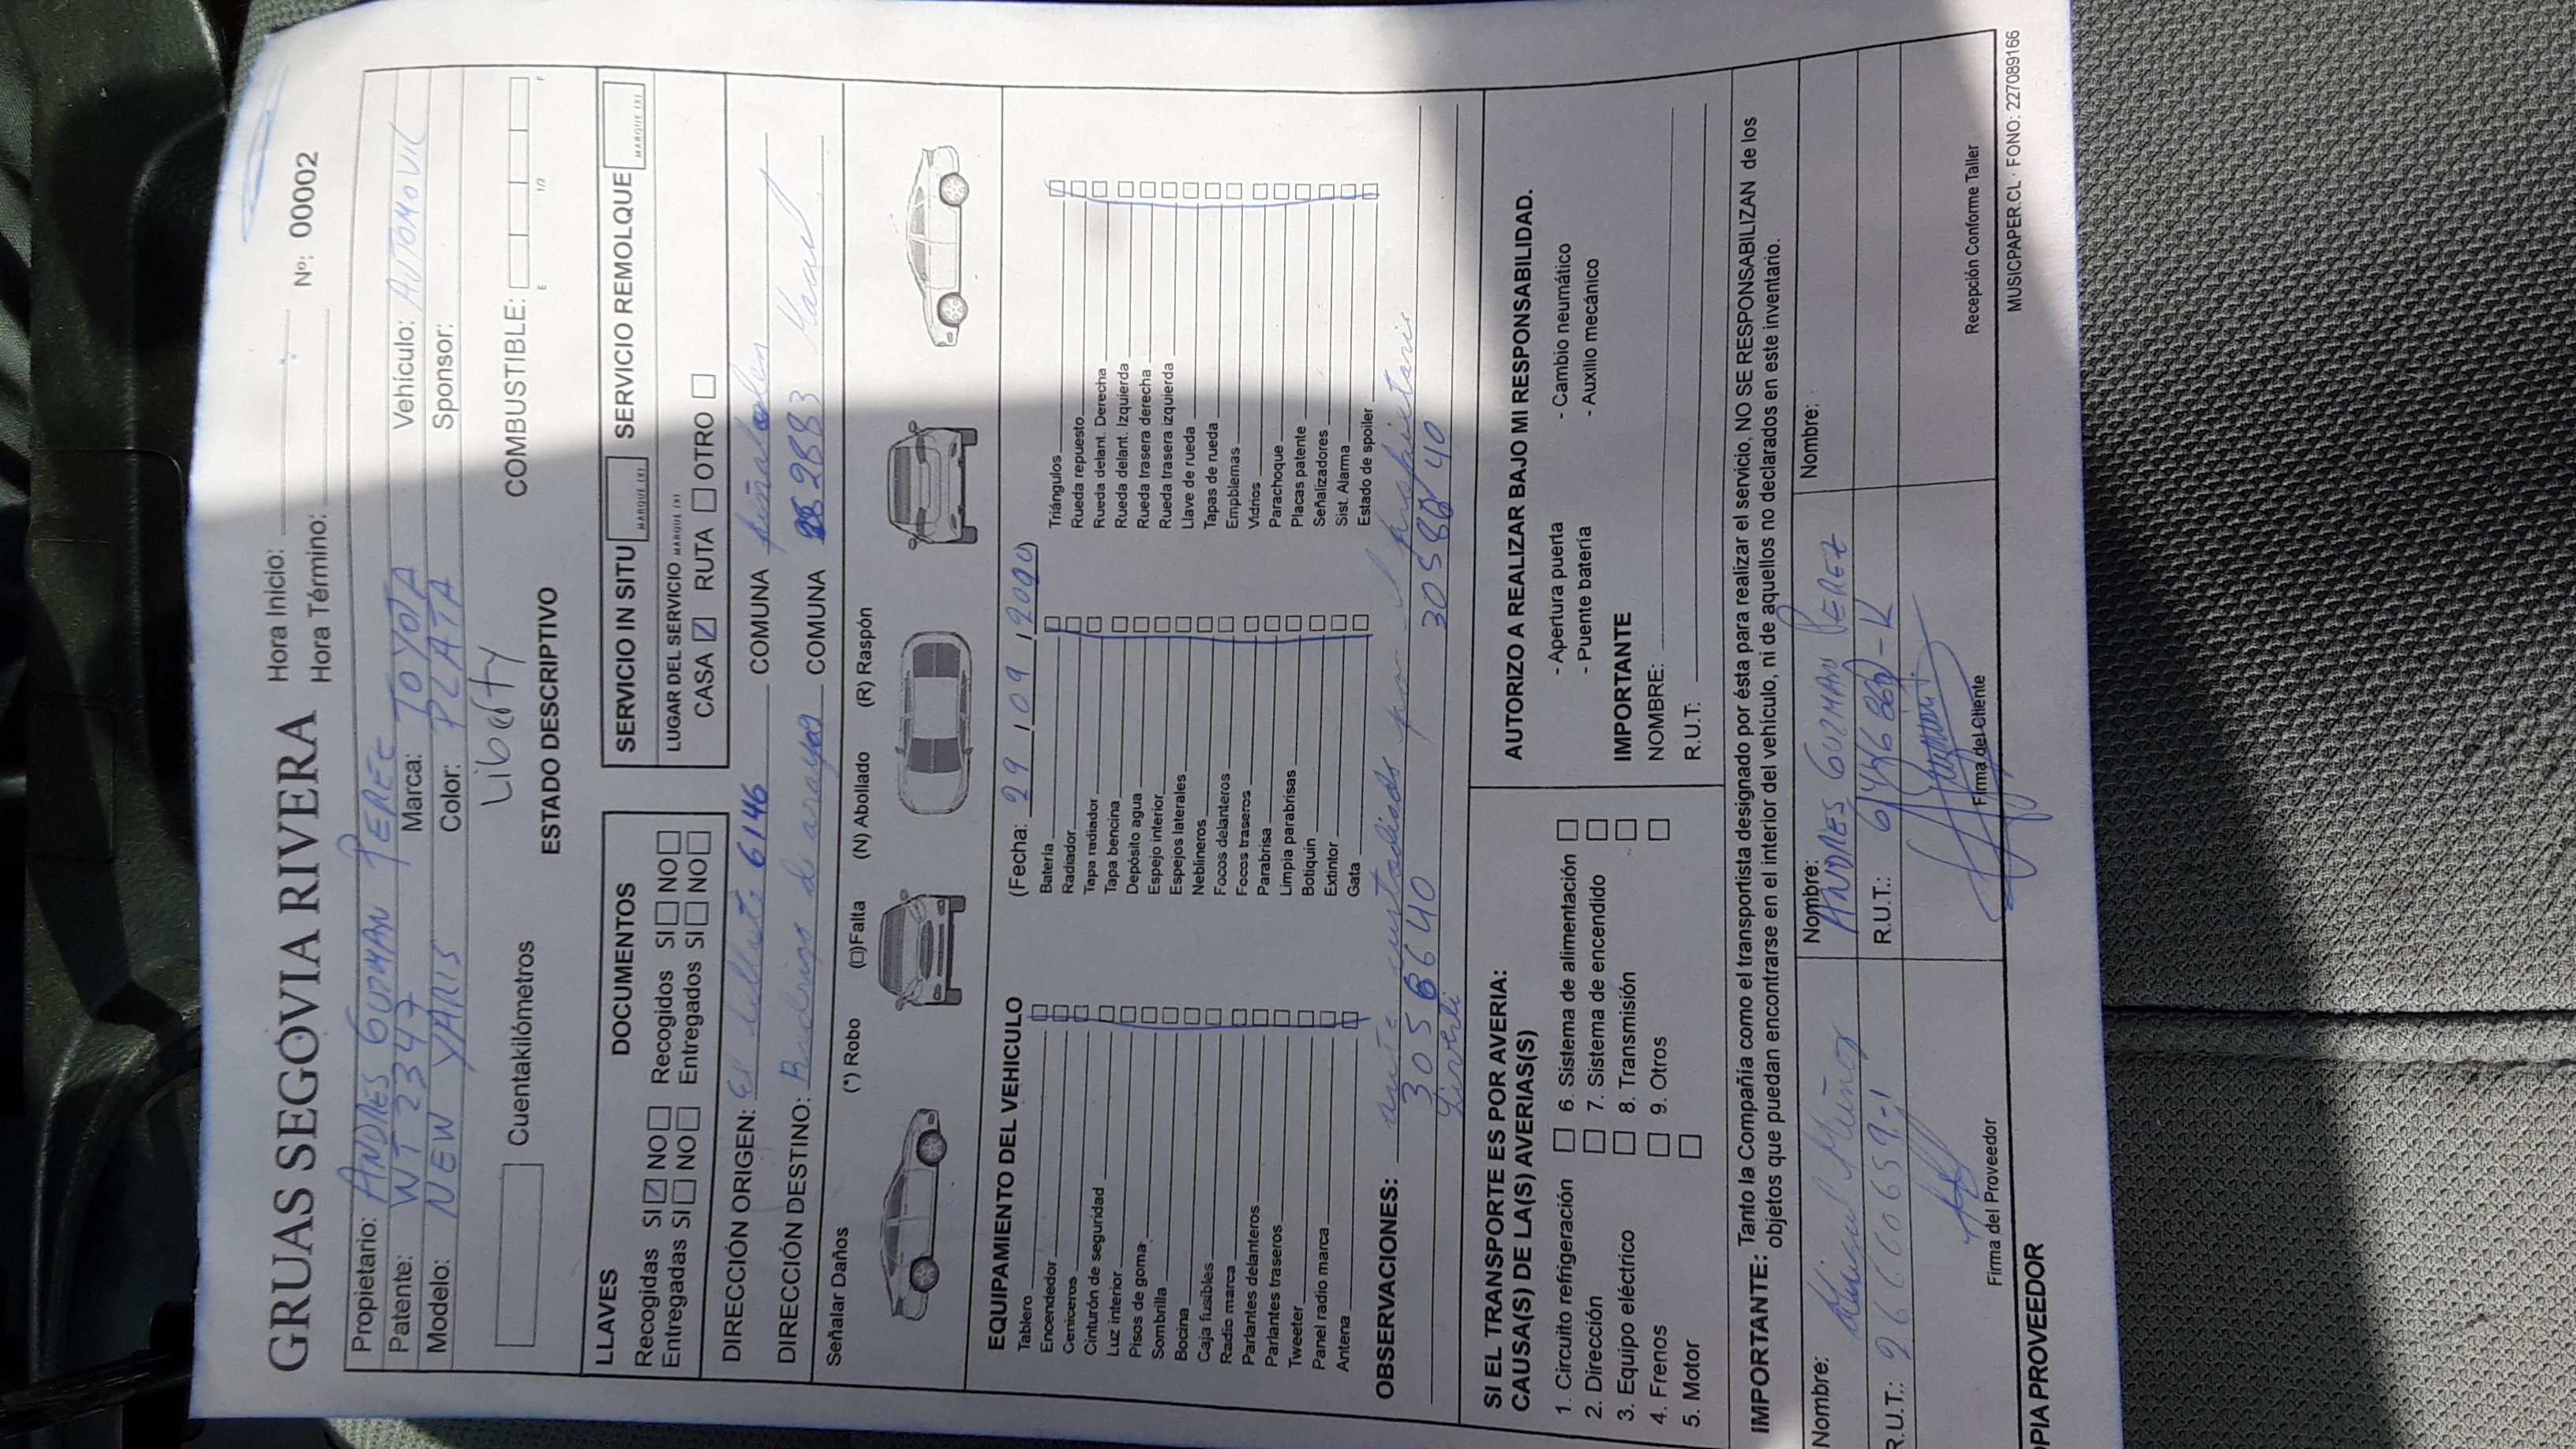 GRUAS SEGOVIA RIVERA
Hora Inicio:
Hora Término:
Nº: 00002
Propietario: ANDRES GUZMAN PEREZ
Patente: WT 2347 Marca: TOYOTA Vehículo: AUTOMOVIL
Modelo: NEW YARIS Color: PLATA Sponsor:
Liberty
Cuentakilómetros COMBUSTIBLE: E 1/2 F
ESTADO DESCRIPTIVO
LLAVES DOCUMENTOS
Recogidas SI ☑ NO ☐ Recogidos SI ☐ NO ☐
Entregadas SI ☐ NO ☐ Entregados SI ☐ NO ☐
SERVICIO IN SITU MARQUE (X) SERVICIO REMOLQUE MARQUE (X)
LUGAR DEL SERVICIO MARQUE (X)
CASA ☑ RUTA ☐ OTRO ☐
DIRECCIÓN ORIGEN: El 6146 COMUNA peñalolen
DIRECCIÓN DESTINO: Rodrigo de araya COMUNA Macul
Señalar Daños (*) Robo (□)Falta (N) Abollado (R) Raspón
EQUIPAMIENTO DEL VEHICULO (Fecha: 29 / 09 / 2020)
Tablero
Encendedor
Ceniceros
Cinturón de seguridad
Luz interior
Pisos de goma
Sombrilla
Bocina
Caja fusibles
Radio marca
Parlantes delanteros
Parlantes traseros
Tweeter
Panel radio marca
Antena
Batería
Radiador
Tapa radiador
Tapa bencina
Depósito agua
Espejo interior
Espejos laterales
Neblineros
Focos delanteros
Focos traseros
Parabrisa
Limpia parabrisas
Botiquin
Extintor
Gata
Triángulos
Rueda repuesto
Rueda delant. Derecha
Rueda delant. Izquierda
Rueda trasera derecha
Rueda trasera izquierda
Llave de rueda
Tapas de rueda
Empblemas
Vidrios
Parachoque
Placas patente
Señalizadores
Sist. Alarma
Estado de spoiler
OBSERVACIONES: auto custodiado por el propietario
3058640
SI EL TRANSPORTE ES POR AVERIA:
CAUSA(S) DE LA(S) AVERIAS(S)
1. Circuito refrigeración ☐ 6. Sistema de alimentación ☐
2. Dirección ☐ 7. Sistema de encendido ☐
3. Equipo eléctrico ☐ 8. Transmisión ☐
4. Frenos ☐ 9. Otros ☐
5. Motor ☐
AUTORIZO A REALIZAR BAJO MI RESPONSABILIDAD.
- Apertura puerta - Cambio neumático
- Puente batería - Auxilio mecánico
IMPORTANTE
NOMBRE:
R.U.T:
IMPORTANTE: Tanto la Compañía como el transportista designado por ésta para realizar el servicio, NO SE RESPONSABILIZAN de los
objetos que puedan encontrarse en el interior del vehículo, ni de aquellos no declarados en este inventario.
Nombre: Muñoz
R.U.T.: 26660659-1
Firma del Proveedor
Nombre: ANDRES GUZMAN PEREZ
R.U.T.:
Firma del Cliente
Nombre:
Recepción Conforme Taller
MUSICPAPER.CL · FONO: 227089166
PIA PROVEEDOR